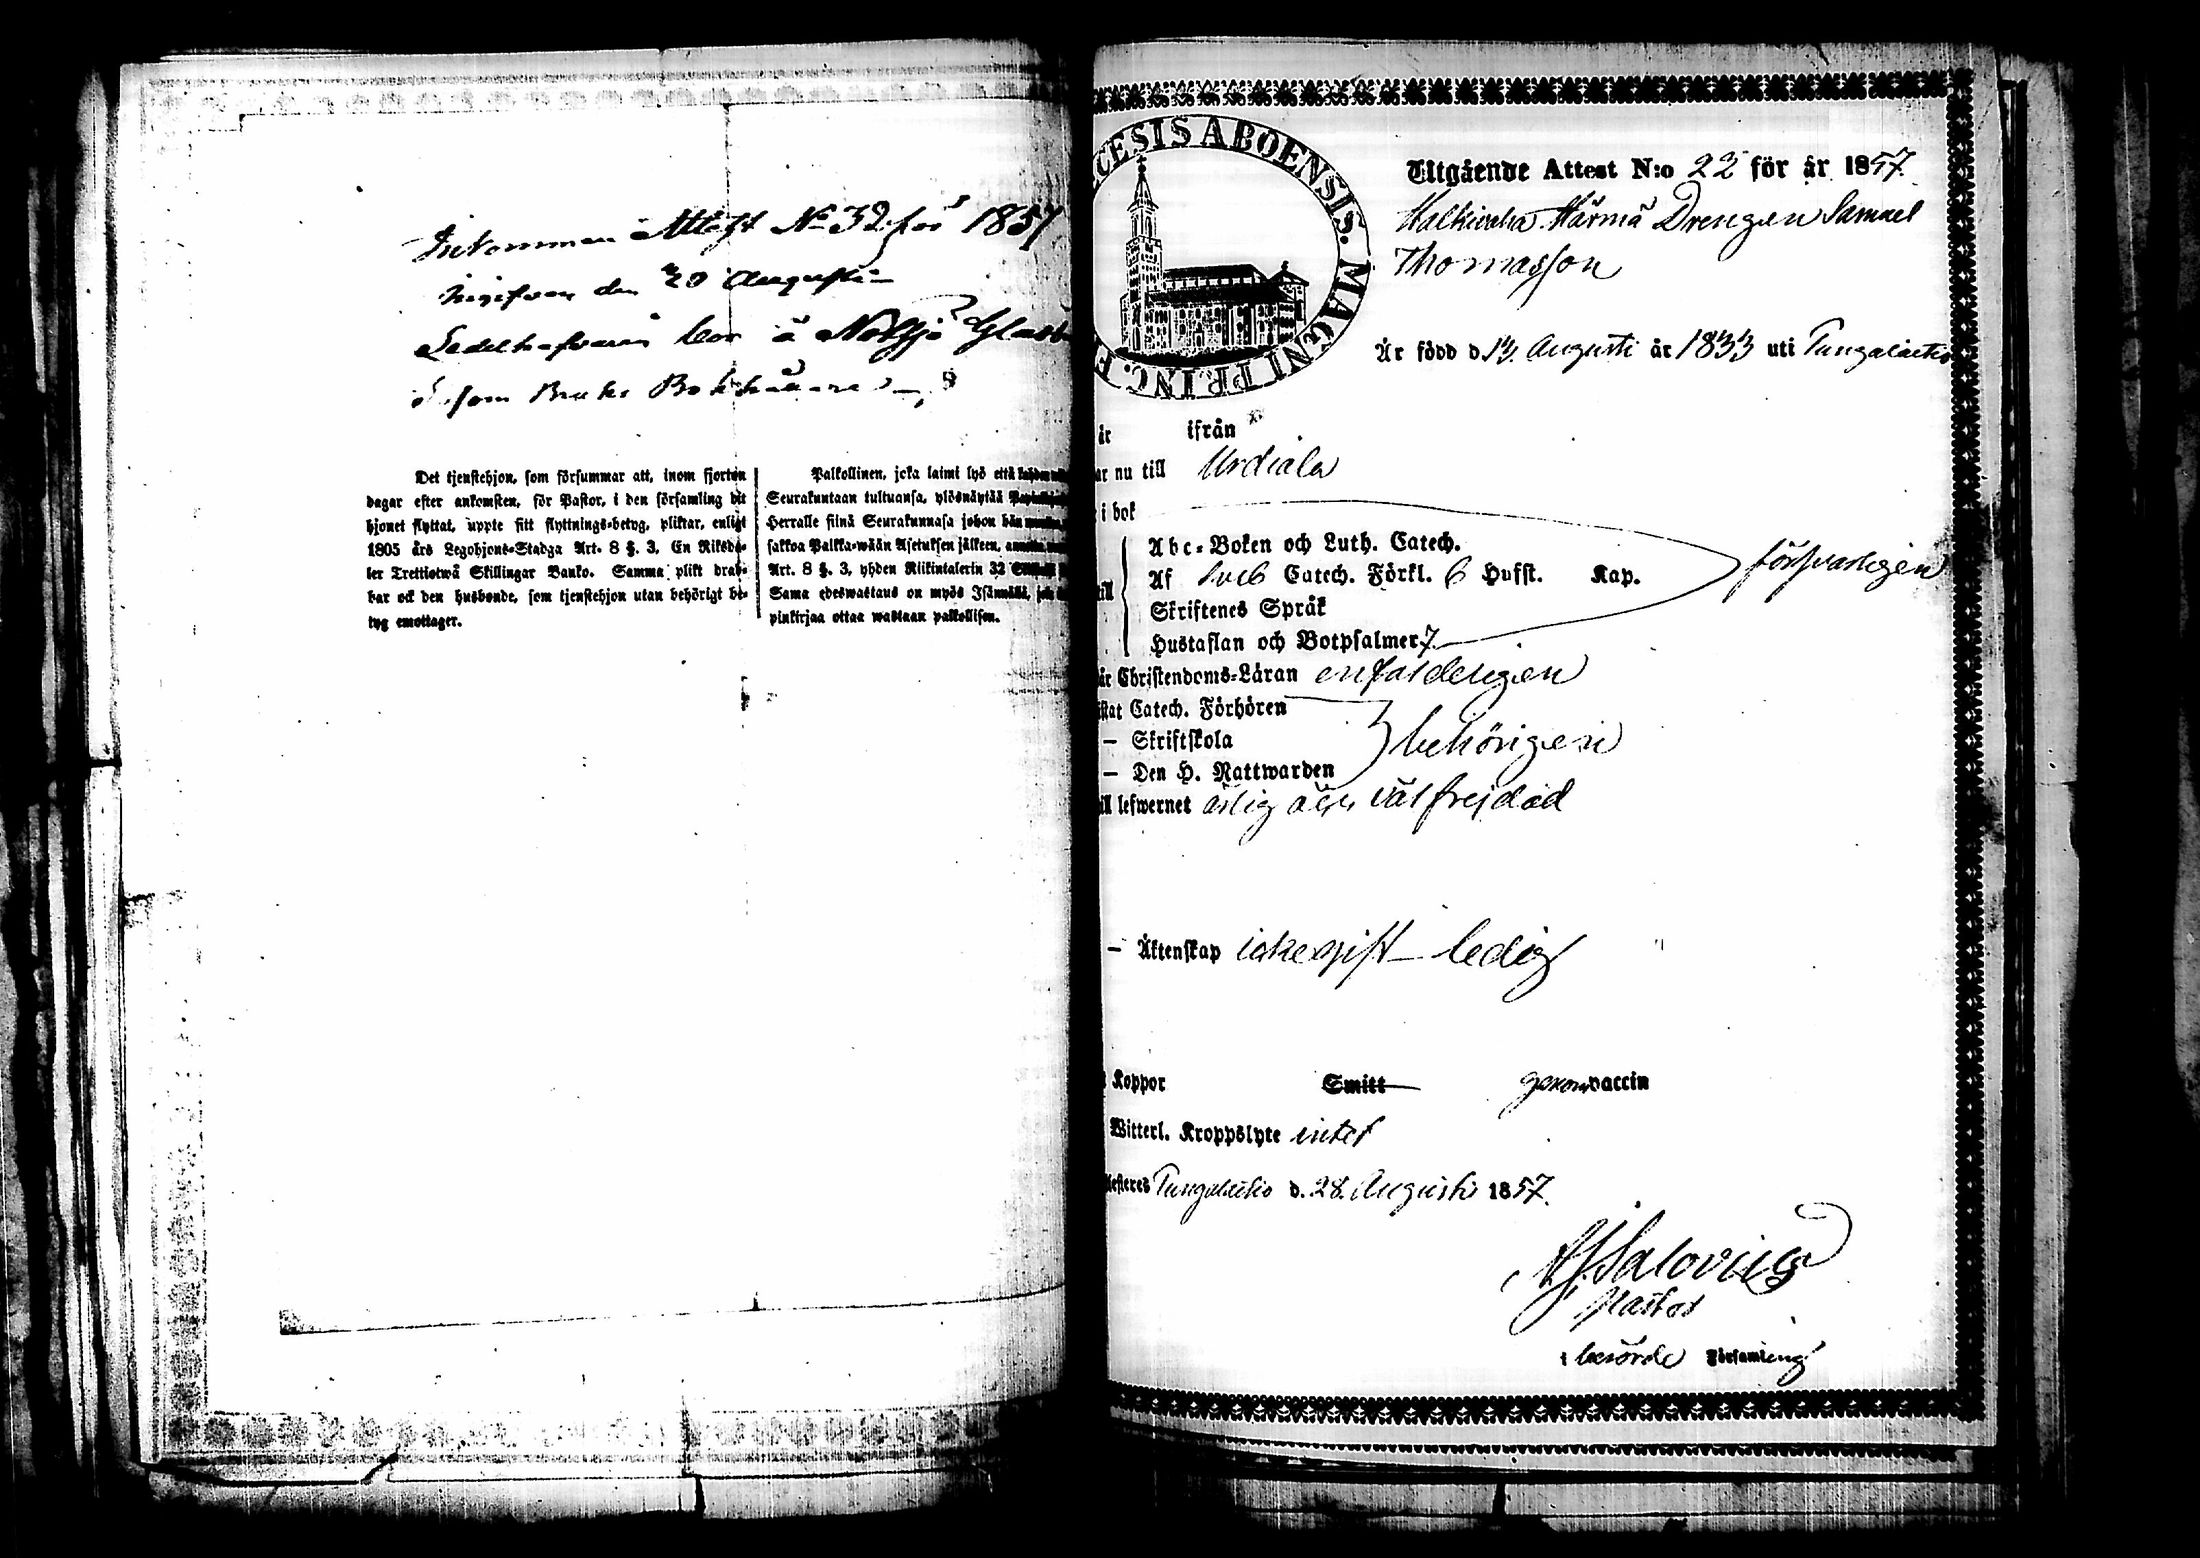 Inkommen Attest No 32 för 1857
den 20 Augusti
Sedelhafvaren bor å Notsjö Glasb
som Bruks Bokhållare
Det tjenstehjon, som försummar att, inom fjorton
dagar efter ankomsten, för Pastor, i den församling dit
hjonet flyttat, uppte sitt flyttnings-betyg, pliktar, enligt
1805 års Legohjons-Stadga Art. 8 §. 3, En Riksda-
ler Trettiotwå Skillingar Banko. Samma plikt drab-
bar ock den husbonde, som tjenstehjon utan behörigt be-
tyg emottager.
Palkollinen, joka laimi lyö että
Seurakuntaan tultuansa, ylösnäytää
Herralle siinä Seurakunnasa johon hän
sakkoa Palkka-wään Asetuksen jälkeen,
Art. 8 §. 3, yhden Riikintalerin 32
Sama edeswastaus on myös Isännällä,
pinkirjaa ottaa wastaan palkollisen.
CESIS ABOENSIS. MAGNI PRINC. F
Utgående Attest N:o 22 för år 1857.
Härmä Drengen Samuel
Thomasson
Är född d. 13. Augusti år 1833 uti
är ifrån
ar nu till Urdiala
i bok
Abc-Boken och Luth. Catech.
Af Sveb Catech. Förkl. 6 Hufst. Kap.
Skriftenes Språk
Hustaflan och Botpsalmer 7
försvarligen
är Christendoms-Läran enfaldeligen
istat Catech. Förhören
— Skriftskola
— Den H. Nattwarden
behörigen
ill lefwernet ärlig och väl frejdad
— Äktenskap icke gift ledig
Koppor Smitt genom vaccin
Witterl. Kroppslyte intet
testeres d. 28. Augusti 1857.
Salovius
Pastor
i berörde Församling